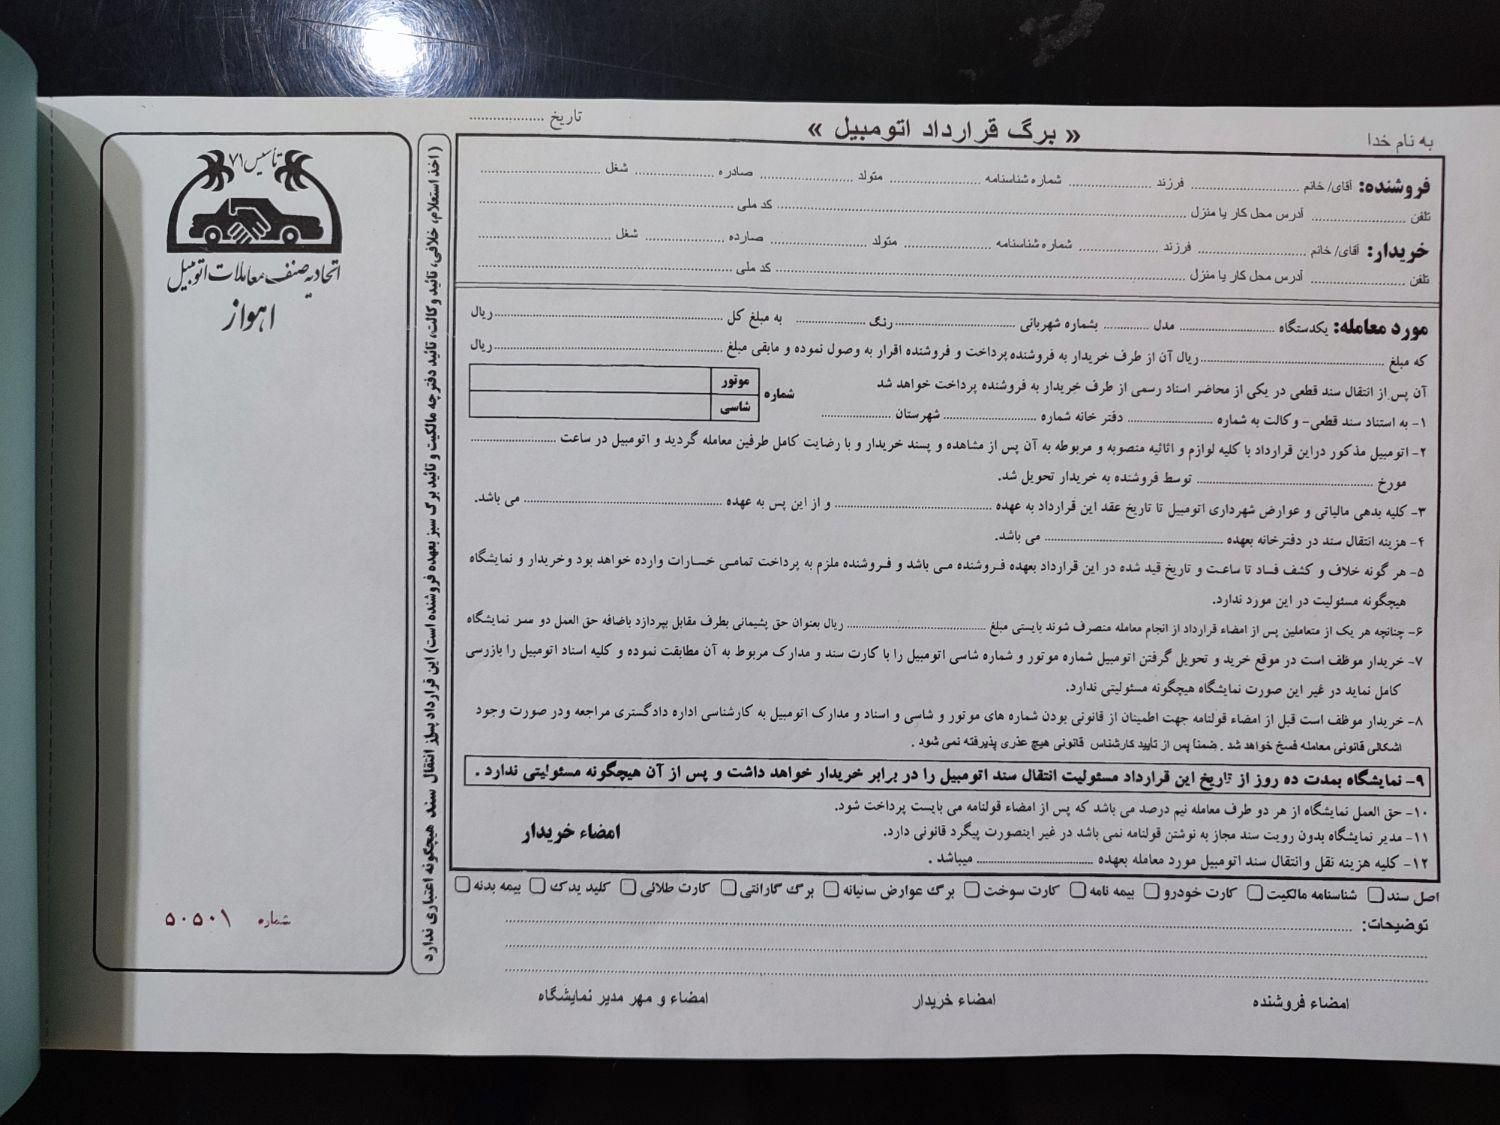 به نام خدا
« برگ قرارداد اتومبیل »
تاریخ ..................
فروشنده: آقای/ خانم .................. فرزند .................. شماره شناسنامه .................. متولد .................. صادره .................. شغل ..................
تلفن .................. آدرس محل کار یا منزل .................. کد ملی ..................
خریدار: آقای/ خانم .................. فرزند .................. شماره شناسنامه .................. متولد .................. صارده .................. شغل ..................
تلفن .................. آدرس محل کار یا منزل .................. کد ملی ..................
مورد معامله: یکدستگاه .................. مدل .................. بشماره شهربانی .................. رنگ .................. به مبلغ کل .................. ریال
که مبلغ .................. ریال آن از طرف خریدار به فروشنده پرداخت و فروشنده اقرار به وصول نموده و مابقی مبلغ .................. ریال
آن پس از انتقال سند قطعی در یکی از محاضر اسناد رسمی از طرف خریدار به فروشنده پرداخت خواهد شد
شماره
موتور
شاسی
۱- به استناد سند قطعی- وکالت به شماره .................. دفتر خانه شماره .................. شهرستان ..................
۲- اتومبیل مذکور دراین قرارداد با کلیه لوازم و اثاثیه منصوبه و مربوطه به آن پس از مشاهده و پسند خریدار و با رضایت کامل طرفین معامله گردید و اتومبیل در ساعت ..................
مورخ .................. توسط فروشنده به خریدار تحویل شد.
۳- کلیه بدهی مالیاتی و عوارض شهرداری اتومبیل تا تاریخ عقد این قرارداد به عهده .................. و از این پس به عهده .................. می باشد.
۴- هزینه انتقال سند در دفترخانه بعهده .................. می باشد.
۵- هر گونه خلاف و کشف فساد تا ساعت و تاریخ قید شده در این قرارداد بعهده فروشنده می باشد و فروشنده ملزم به پرداخت تمامی خسارات وارده خواهد بود وخریدار و نمایشگاه
هیچگونه مسئولیت در این مورد ندارد.
۶- چنانچه هر یک از متعاملین پس از امضاء قرارداد از انجام معامله منصرف شوند بایستی مبلغ .................. ریال بعنوان حق پشیمانی بطرف مقابل بپردازد باضافه حق العمل دو سر نمایشگاه
۷- خریدار موظف است در موقع خرید و تحویل گرفتن اتومبیل شماره موتور و شماره شاسی اتومبیل را با کارت سند و مدارک مربوط به آن مطابقت نموده و کلیه اسناد اتومبیل را بازرسی
کامل نماید در غیر این صورت نمایشگاه هیچگونه مسئولیتی ندارد.
۸- خریدار موظف است قبل از امضاء قولنامه جهت اطمینان از قانونی بودن شماره های موتور و شاسی و اسناد و مدارک اتومبیل به کارشناسی اداره دادگستری مراجعه ودر صورت وجود
اشکالی قانونی معامله فسخ خواهد شد . ضمناً پس از تأیید کارشناس قانونی هیچ عذری پذیرفته نمی شود .
۹- نمایشگاه بمدت ده روز از تاریخ این قرارداد مسئولیت انتقال سند اتومبیل را در برابر خریدار خواهد داشت و پس از آن هیچگونه مسئولیتی ندارد .
۱۰- حق العمل نمایشگاه از هر دو طرف معامله نیم درصد می باشد که پس از امضاء قولنامه می بایست پرداخت شود.
۱۱- مدیر نمایشگاه بدون رویت سند مجاز به نوشتن قولنامه نمی باشد در غیر اینصورت پیگرد قانونی دارد.
۱۲- کلیه هزینه نقل وانتقال سند اتومبیل مورد معامله بعهده .................. میباشد .
امضاء خریدار
اصل سند □ شناسنامه مالکیت □ کارت خودرو □ بیمه نامه □ کارت سوخت □ برگ عوارض سالیانه □ برگ گارانتی □ کارت طلائی □ کلید یدک □ بیمه بدنه □
توضیحات: ..................
امضاء فروشنده
امضاء خریدار
امضاء و مهر مدیر نمایشگاه
( اخذ استعلام، خلافی، تائید وکالت، تائید دفترچه مالکیت و تائید برگ سبز بعهده فروشنده است) این قرارداد پس از انتقال سند هیچگونه اعتباری ندارد
تأسیس ۷۱
اتحادیه صنف معاملات اتومبیل
اهواز
شماره ۵۰۵۰۱